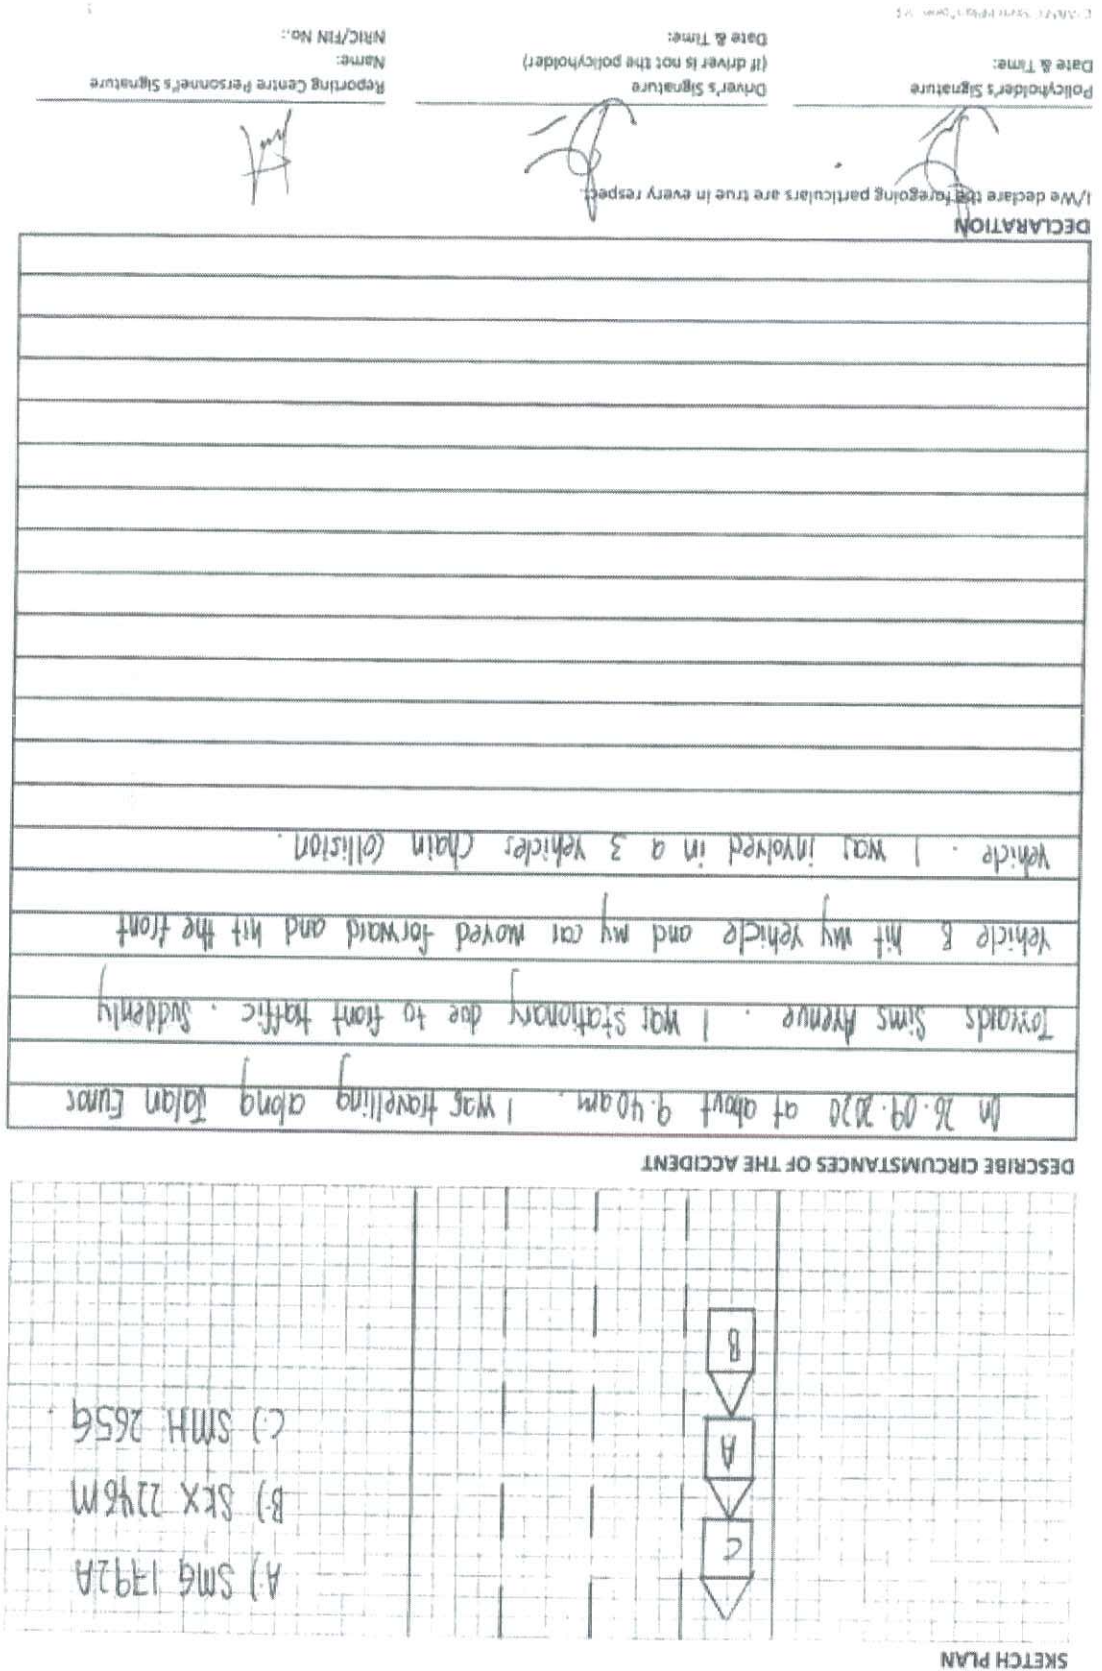 SKETCH PLAN
A.) SMG 1792A
B.) SKX 2246M
C.) SMH 265G
C
A
B
DESCRIBE CIRCUMSTANCES OF THE ACCIDENT
On 26.09.2020 at about 9.40am. I was travelling along Jalan Eunos
Towards Sims Avenue. I was stationary due to front traffic. Suddenly
vehicle B hit my vehicle and my car moved forward and hit the front
vehicle. I was involved in a 3 vehicles chain collision.
DECLARATION
I/We declare the foregoing particulars are true in every respect.
Policyholder's Signature
Date & Time:
Driver's Signature
(if driver is not the policyholder)
Date & Time:
Reporting Centre Personnel's Signature
Name:
NRIC/FIN No.: